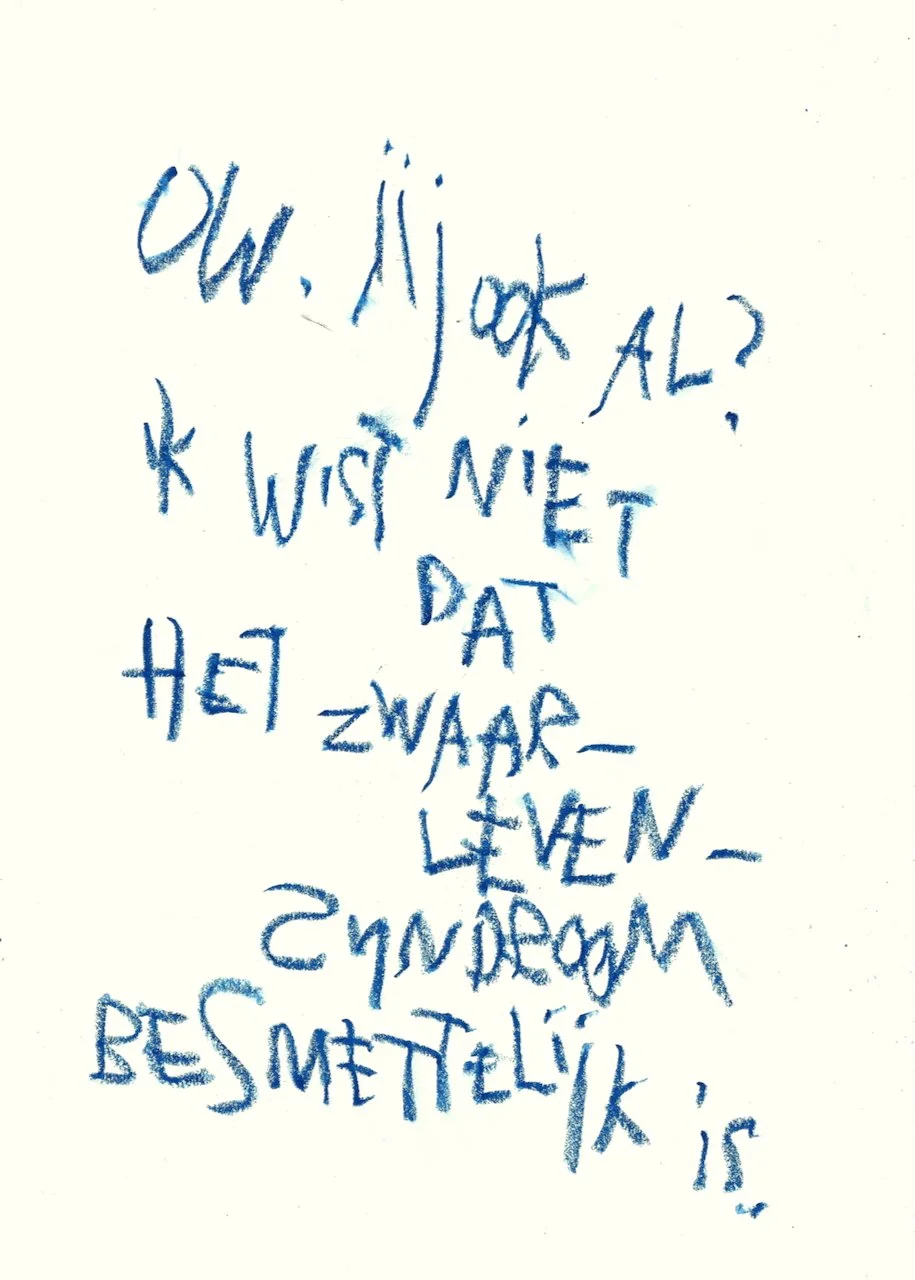 OW. Jij ook AL?
ik WiST NiET
DAT
HET ZWAAR-
LEVEN-
SYNDROOM
BESMETTELIJK is.